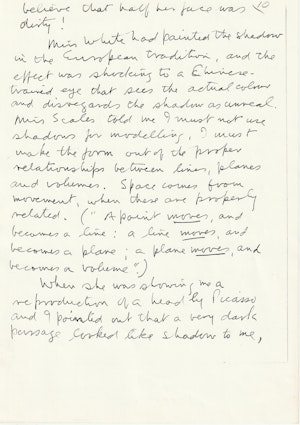 believe that half her face was 10
dirty!
Miss White had painted the shadow
in the European tradition, and the
effect was shocking to a Chinese-
trained eye that sees the actual colour
and disregards the shadow as unreal.
Miss Scales told me I must not use
shadows for modelling, I must
make the form out of the proper
relationships between lines, planes
and volumes. Space comes from
movement, when these are properly
related. ("A point moves, and
becomes a line: a line moves, and
becomes a plane; a plane moves, and
becomes a volume".)
When she was showing me a
reproduction of a head by Picasso
and I pointed out that a very dark
passage looked like shadow to me,